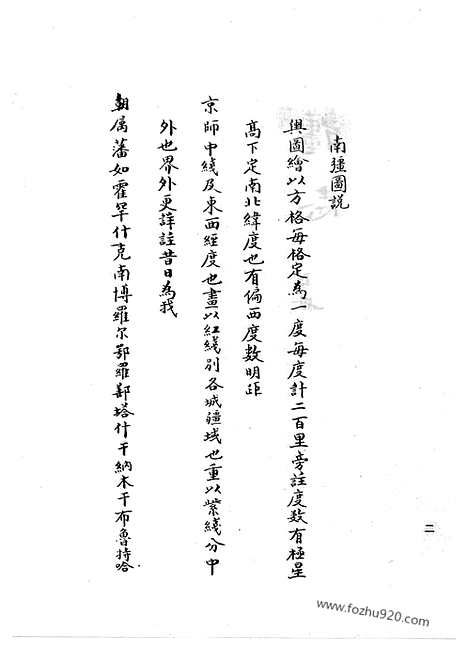 南疆圖説
輿圖繪以方格每格定為一度每度計二百里旁註度数有極星
高下定南北緯度也有偏西度数明距
京師中綫及東西經度也畫以紅綫別各城疆域也重以紫綫分中
外也界外更詳註昔日為我
朝属藩如霍罕什克南博羅尔鄂羅鄯塔什干納木干布魯特哈
二
www.fozhu920.com